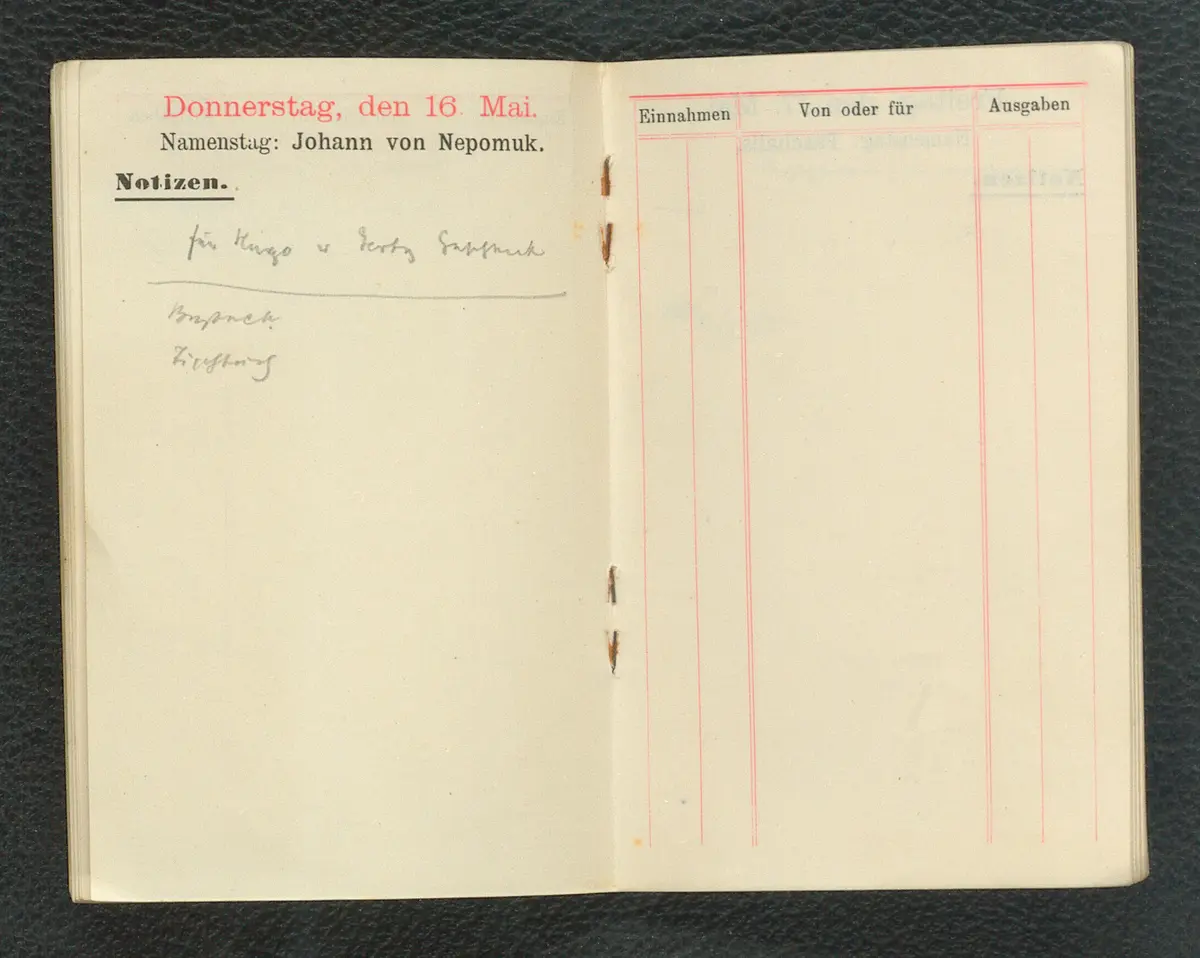 Donnerstag, den 16. Mai.
Namenstag: Johann von Nepomuk.
Notizen.
für Hugo u
Einnahmen
Von oder für
Ausgaben